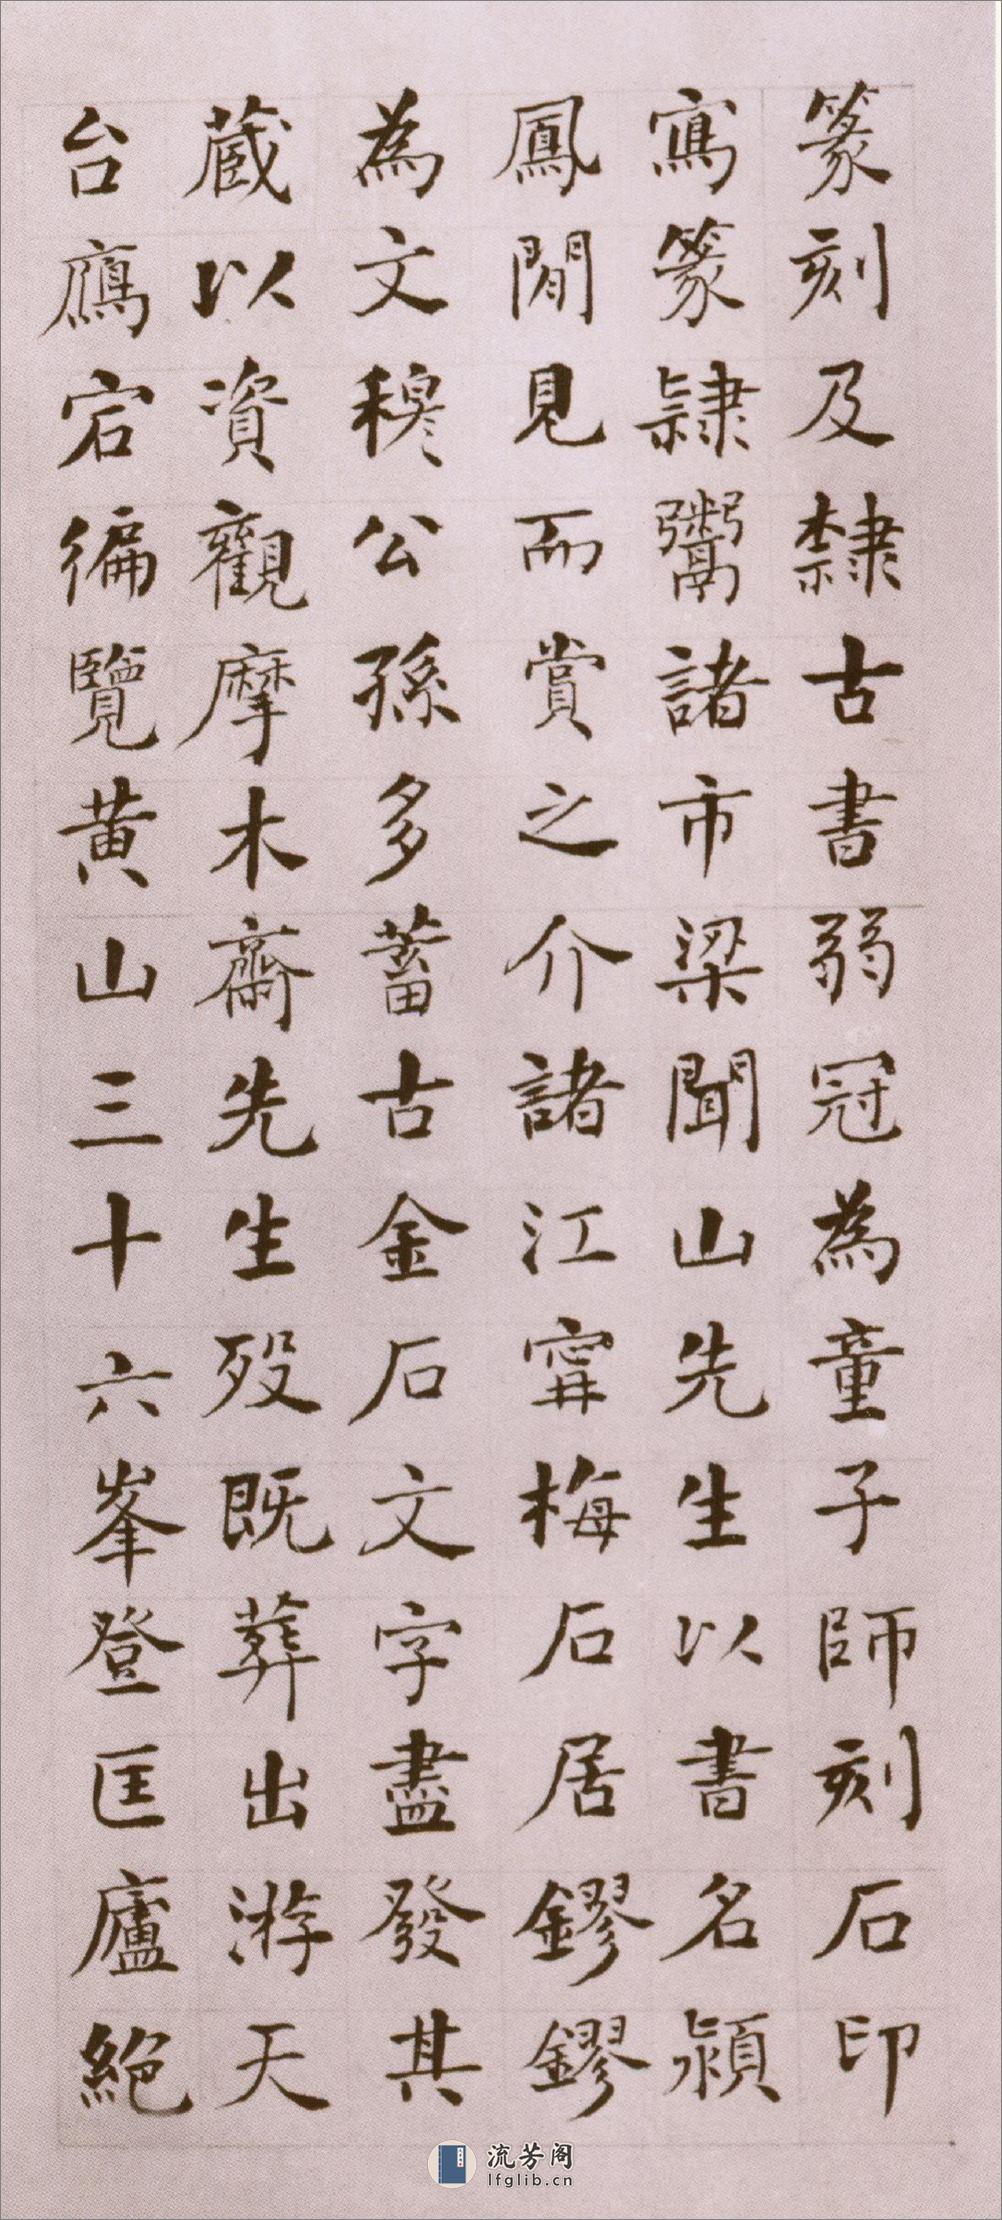 篆刻及隸古書弱冠為童子師刻石印
寫篆隸鬻諸市梁聞山先生以書名潁
鳳閒見而賞之介諸江寗梅石居鏐鏐
為文穆公孫多蓄古金石文字盡發其
蔵以資觀摩木齋先生歿既葬出游天
台鴈宕徧覽黄山三十六峯登匡廬絶
流芳阁
lfglib.cn